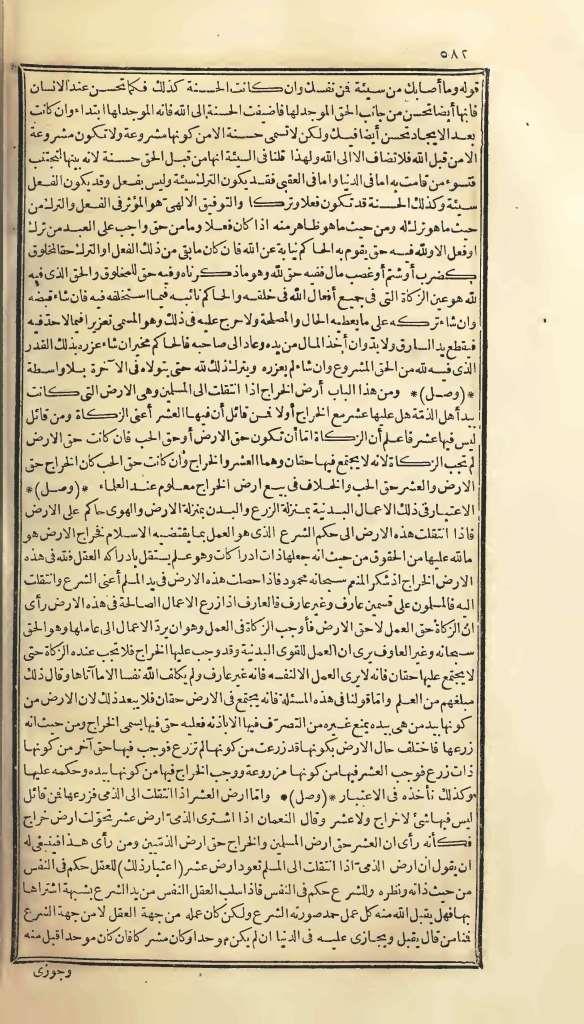 ٥٨٢
قوله وما أصابك من سيئة فمن نفسك وان كانت الحسنة كذلك فكما تحسن عند الانسان
فانها أيضا تحسن من جانب الحق الموجد لها فأضيفت الحسنة الى الله فانه الموجد لها ابتداء وان كانت
بعد الايجاد تحسن أيضا فيك ولكن لا تسمى حسنة الا من كونها مشروعة ولا تكون مشروعة
الا من قبل الله فلا تضاف الا الى الله ولهذا قلنا فى السيئة انها من قبل الحق حسنة لانه بينها لتجتنب
فتسوء من قامت به اما فى الدنيا واما فى العقبى فقد يكون الترك سيئة وليس بفعل وقد يكون الفعل
سيئة وكذلك الحسنة قد تكون فعلا وتركا والتوفيق الالهى هو المؤثر فى الفعل والترك من
حيث ماهو ترك له ومن حيث ماهو ظاهر منه اذا كان فعلا وما من حق واجب على العبد من ترك
أو فعل الا ولله فيه حق يقوم به الحاكم نيابة عن الله فان كان ما بقى من ذلك الفعل او الترك حقا لمخلوق
كضرب أو شتم أو غصب مال ففيه حق لله وهو ماذكرناه وفيه حق للمخلوق والحق الذى فيه
لله هو عين الزكاة التى فى جميع أفعال الله فى خلقه والحاكم نائبه فيما استخلفه فيه فان شاء قبضه
وان شاء تركه على ما يعطيه الحال والمصلحة ولا حرج عليه فى ذلك وهو المسمى تعزيرا فيما لا حد فيه
فيقطع يد السارق ولا بد وان أخذ المال من يده وعاد الى صاحبه فالحاكم مخير ان شاء عزره بذلك القدر
الذى فيه لله من الحق المشروع وان شاء لم يعزره ويترك ذلك لله حتى يتولاه فى الآخرة بلا واسطة
* (وصل) * ومن هذا الباب أرض الخراج اذا انتقلت الى المسلمين وهى الارض التى كانت
بيد أهل الذمة هل عليها عشر مع الخراج أولا فمن قائل أن فيها العشر أعنى الزكاة ومن قائل
ليس فيها عشر فاعلم أن الزكاة اما أن تكون حق الارض أو حق الحب فان كانت حق الارض
لم تجب الزكاة لانه لا يجتمع فيها حقان وهما العشر والخراج وان كانت حق الحب كان الخراج حق
الارض والعشر حق الحب والخلاف فى بيع ارض الخراج معلوم عند العلماء * (وصل) *
الاعتبار فى ذلك الاعمال البدنية بمنزلة الزرع والبدن بمنزلة الارض والهوى حاكم على الارض
فاذا انتقلت هذه الارض الى حكم الشرع الذى هو العمل بما يقتضيه الاسلام فخراج الارض هو
ما لله عليها من الحقوق من حيث انه جعلها ذات ادراكات وهو علم يستقل بادراكه العقل فلله فى هذه
الارض الخراج اذ شكر المنعم سبحانه محمود فاذا حصلت هذه الارض فى يد المسلم أعنى الشرع وانتقلت
اليه فالمسلمون على قسمين عارف وغير عارف فالعارف اذا زرع الاعمال الصالحة فى هذه الارض رأى
ان الزكاة حق العمل لا حق الارض فأوجب الزكاة فى العمل وهو ان يرد الاعمال الى عاملها وهو الحق
سبحانه وغير العارف يرى ان العمل للقوى البدنية وقد وجب عليها الخراج فلا تجب عنده الزكاة حتى
لا يجتمع عليها حقان فانه لا يرى العمل الا لنفسه فانه غير عارف ولم يكلف الله نفسا الا ما آتاها وقال ذلك
مبلغهم من العلم وانما قولنا فى هذه المسئلة فانه يجتمع فى الارض حقان فلا يبعد ذلك لان الارض من
كونها بيد من هى بيده يمنع غيره من التصرف فيها الا باذنه فعليه حق فيها يسمى الخراج ومن حيث انه
زرعها فاختلف حال الارض بكونها قد زرعت من كونها لم تزرع فوجب فيها حق آخر من كونها
ذات زرع فوجب العشر فيها من كونها مزروعة ووجب الخراج فيها من كونها بيده وحكمه عليها
وكذلك نأخذه فى الاعتبار * (وصل) * واما ارض العشر اذا انتقلت الى الذمى فزرعها فمن قائل
ليس فيها شئ لا خراج ولا عشر وقال النعمان اذا اشترى الذمى ارض عشر تحولت ارض خراج
فكأنه رأى ان العشر حق ارض المسلمين والخراج حق ارض الذميين ومن رأى هذا فينبغى له
ان يقول ان ارض الذمى اذا انتقلت الى المسلم تعود ارض عشر (اعتبار ذلك) للعقل حكم فى النفس
من حيث ذاته ونظره وللشرع حكم فى النفس فاذا سلب العقل النفس من يد الشرع بشبهة اشتراها
بها فهل يقبل الله منه كل عمل حمد صورته الشرع ولكن كان عمله من جهة العقل لا من جهة الشرع
فمنا من قال يقبل ويجازى عليه فى الدنيا ان لم يكن موحدا وكان مشركا فان كان موحدا قبل منه
وجوزى